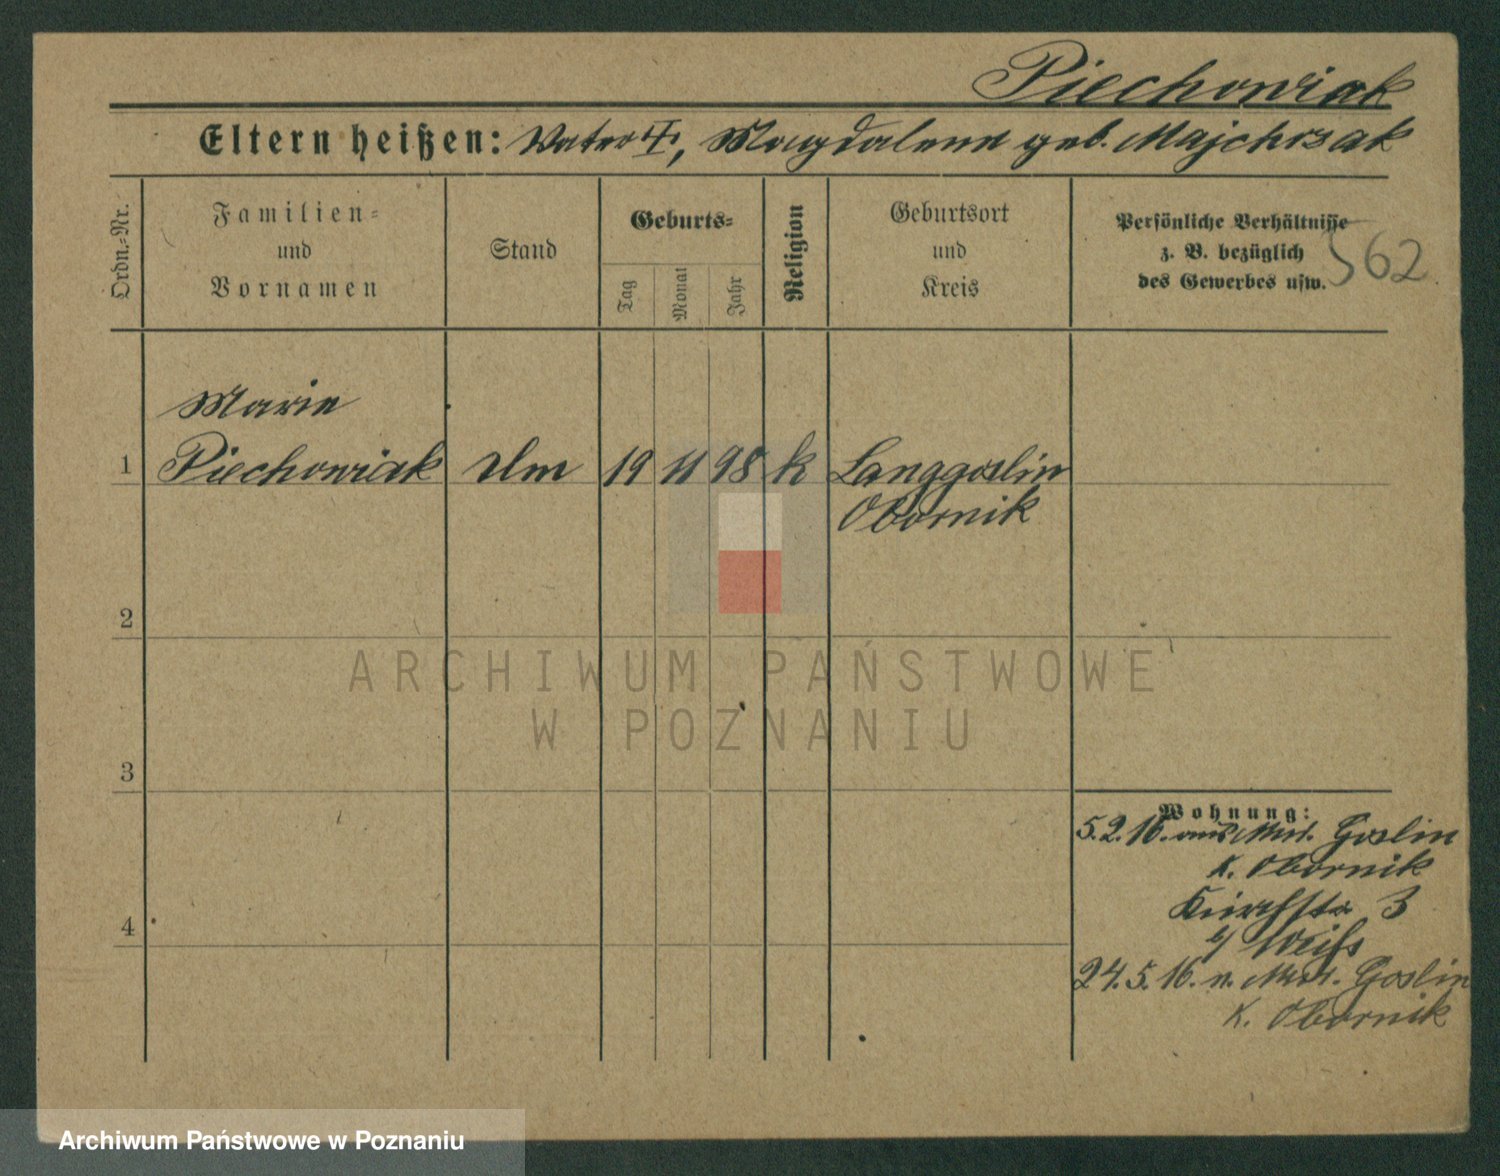 Piechowiak
Eltern heißen: Vater †, Magdalena geb. Majchrzak
Ordn.-Nr.
Familien-
und
Vornamen
Stand
Geburts-
Tag
Monat
Jahr
Religion
Geburtsort
und
Kreis
Persönliche Verhältnisse
z. B. bezüglich
des Gewerbes usw.
562
Marie
1 Piechowiak 19 11 98 k Langgoslin
Obornik
2
3
4
Wohnung:
5.2.16. aus Mur. Goslin
K. Obornik
Kirchstr 3
b/ Weiss
24.5.16. n. Mur. Goslin
K. Obornik
ARCHIWUM PAŃSTWOWE
W POZNANIU
Archiwum Państwowe w Poznaniu